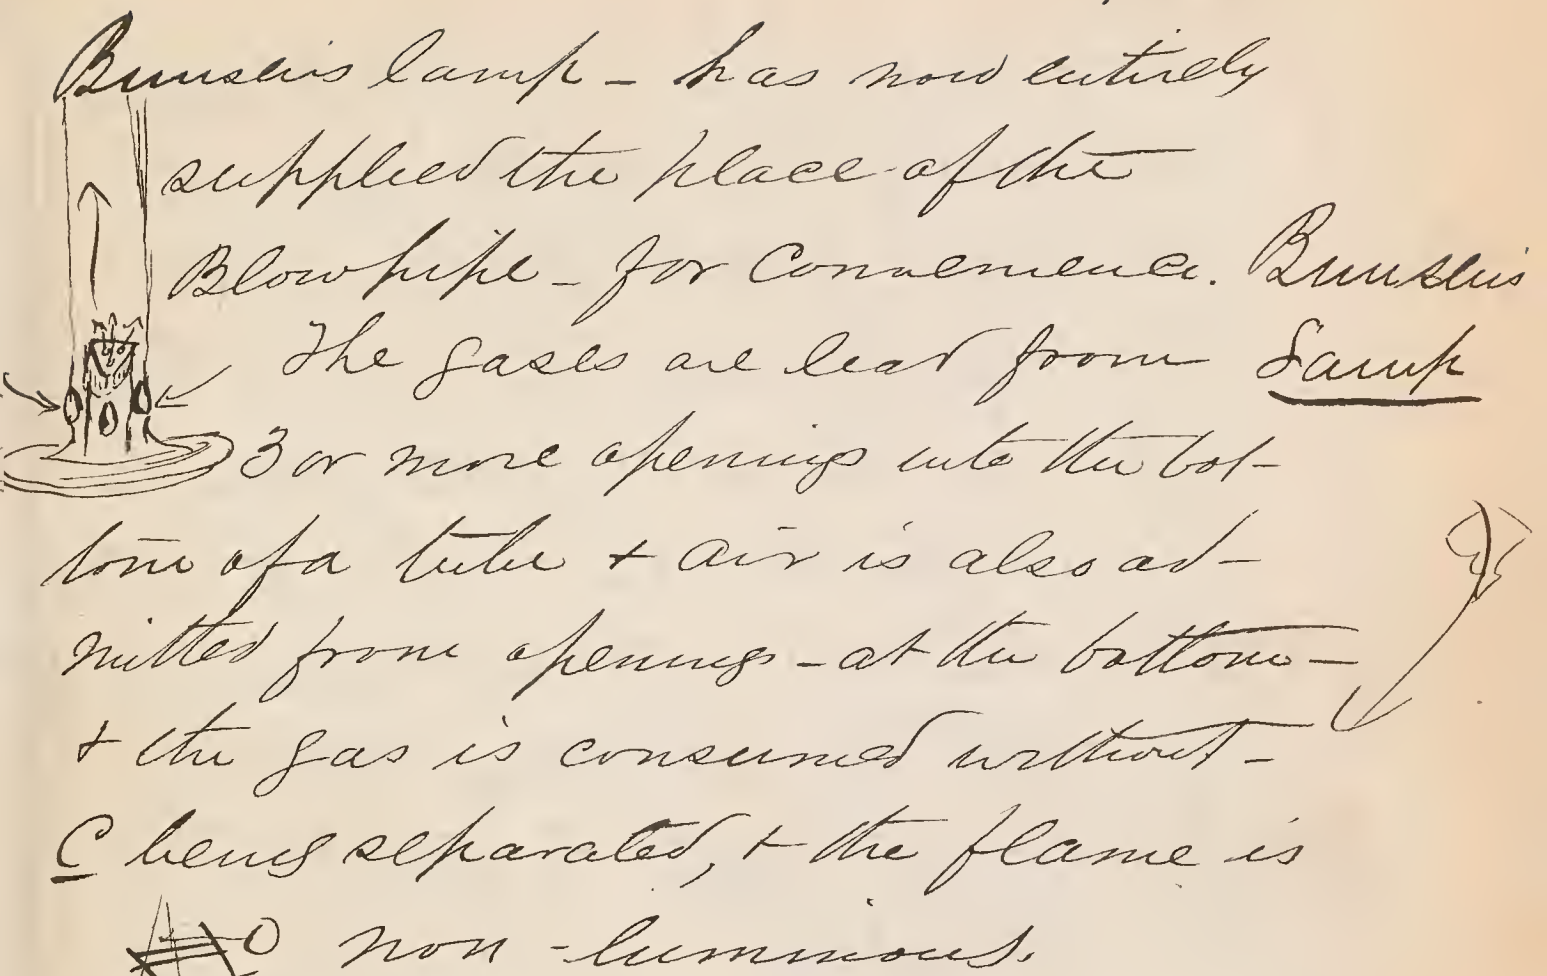 Bunsens lamp – has now entirely
supplied the place of the
Blowpipe – for Convenience.
Bunsens
Lamp
The gases are lead from
3 or more openings into the bot-
tom of a tube + air is also ad-
mitted from openings – at the bottom –
+ the gas is consumed without –
C being separated, + the flame is
non-luminous.